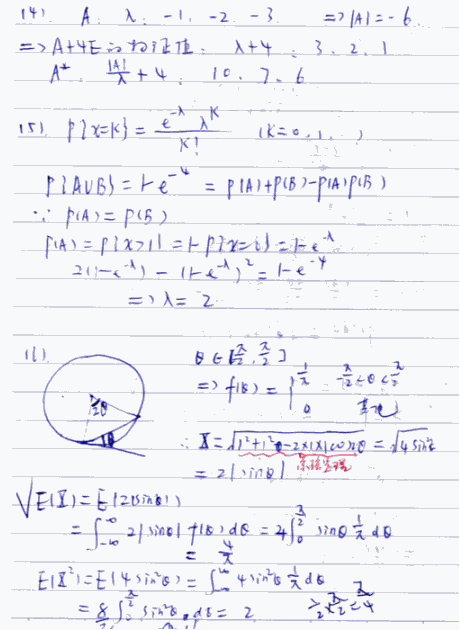 (4). A: λ: -1, -2, -3 ⇒|A|=-6
⇒ A+4E的特征值: λ+4: 3, 2, 1
A* |A|/λ +4: 10, 7, 6
(5). P{x=K} = e^{-λ} λ^K / K! (K=0,1,
P{A∪B} = 1-e^{-4} = P(A)+P(B)-P(A)P(B)
∵ P(A) = P(B)
P(A) = P{x>1} = 1-P{x= } = 1-e^{-λ}
2(1-e^{-λ}) - (1-e^{-λ})² = 1-e^{-4}
⇒ λ = 2
(6) θ∈[π/2, π/2]
2θ θ
⇒ f(θ) = { 1/π -π/2<θ<π/2
0 其他
∴ X = √(1²+1²-2×1×1cos2θ) = √4sin²
余弦定理
= 2|sinθ|
√E(X) = E(2|sinθ|)
= ∫_{-∞}^{∞} 2|sinθ| f(θ) dθ = 4∫_0^{π/2} sinθ 1/π dθ
= 4/π
E(X²) = E(4sin²θ) = ∫_{-∞}^{∞} 4sin²θ 1/π dθ
= 8/π ∫_0^{π/2} sin²θ dθ = 2 1/2×π/2=π/4